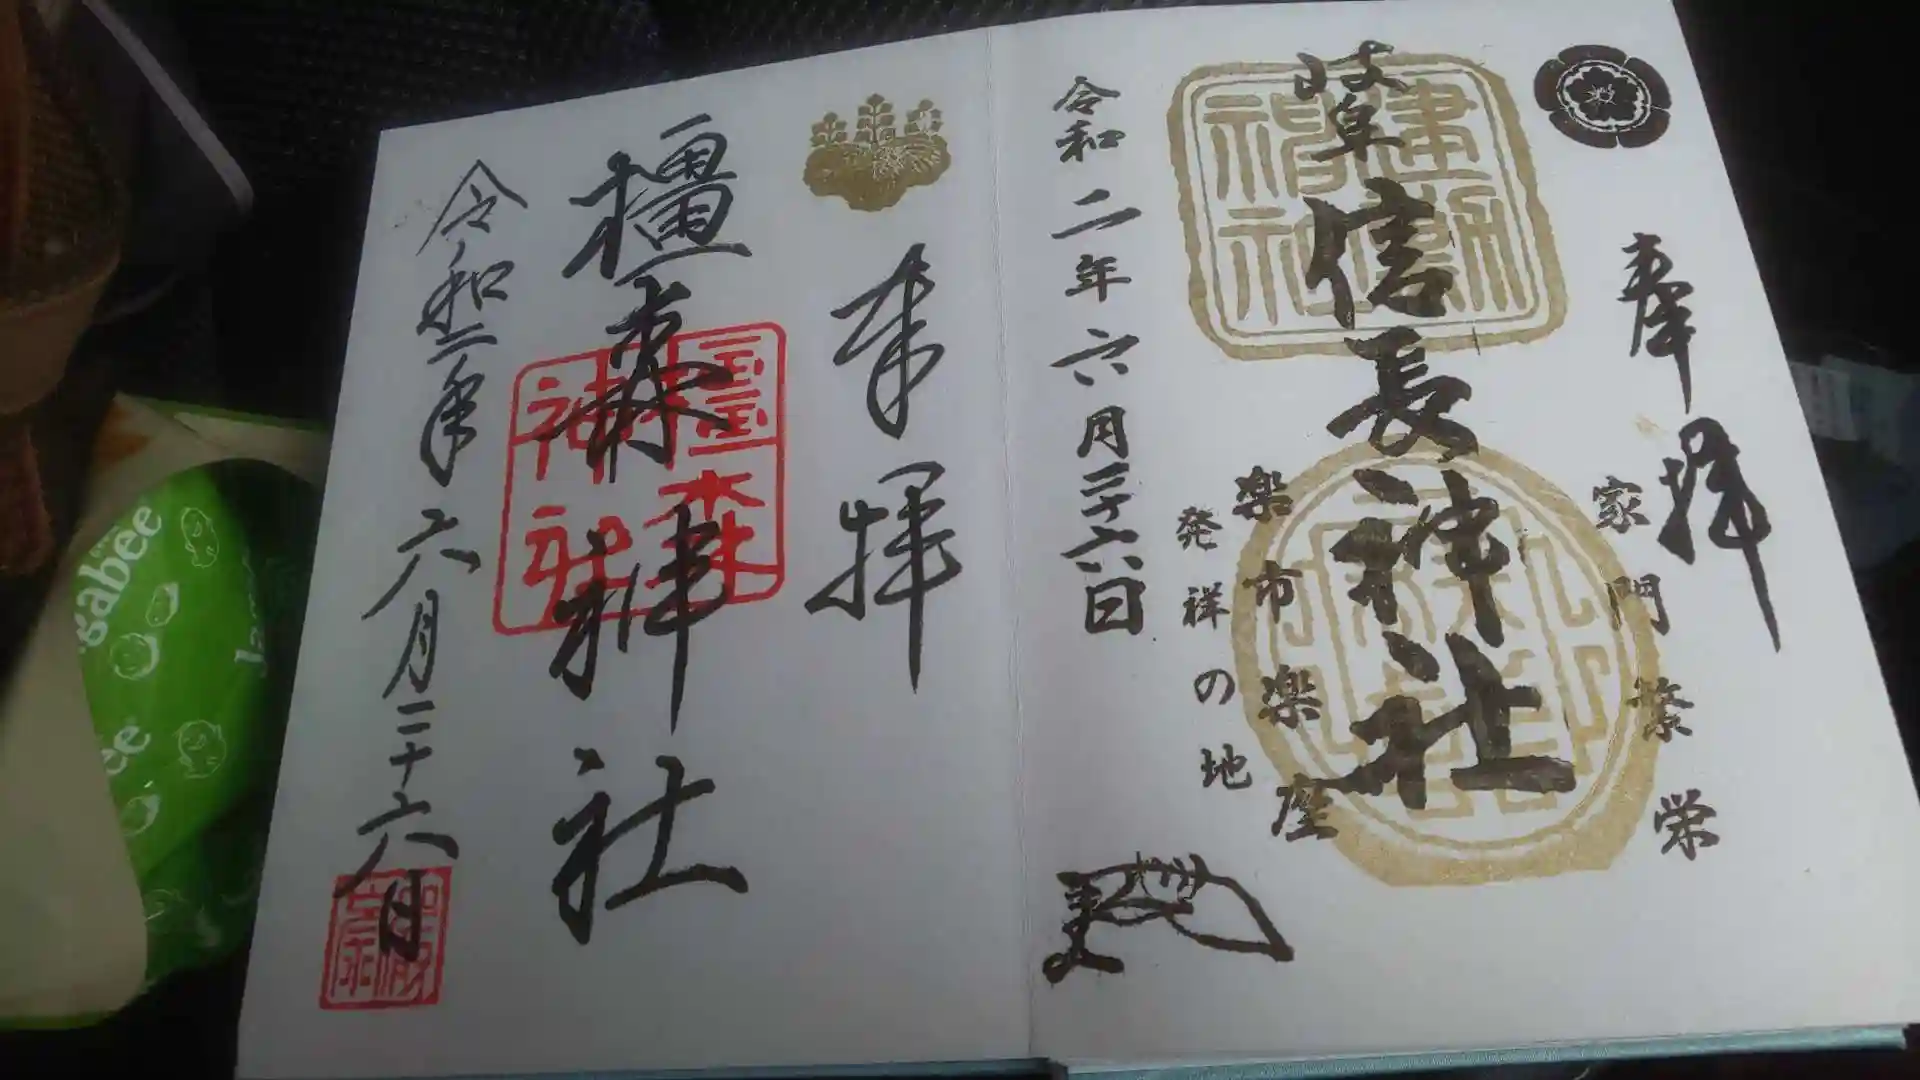 奉拝
岐阜信長神社
家門繁栄
楽市楽座
発祥の地
令和二年六月二十六日
建勲
神社
奉拝
橿森神社
令和二年六月二十六日
橿森
神社
gabee